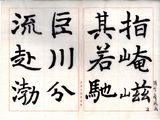 指崦嵫
其若馳
巨川分
流赴渤